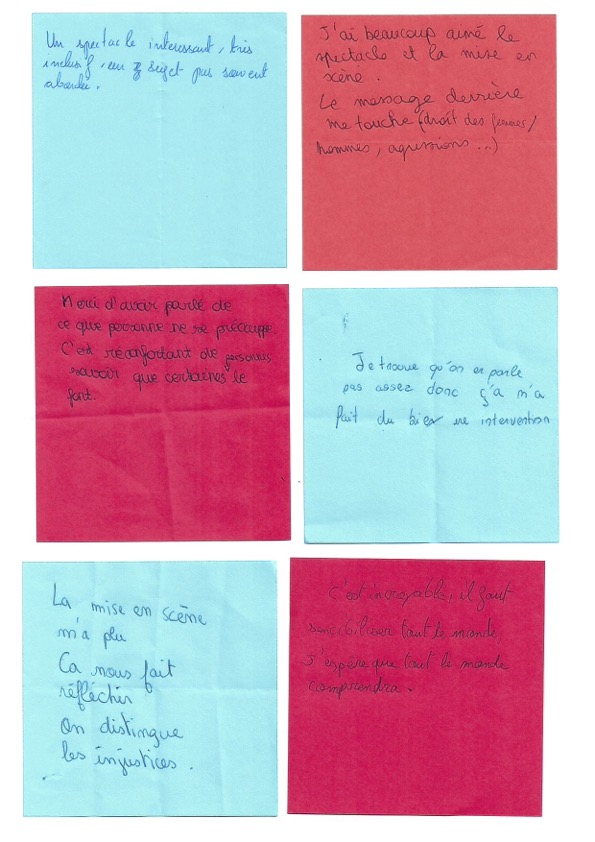 Un spectacle interessant, très
inclusif, un sujet pas souvent
abordé.
J'ai beaucoup aimé le
spectacle et la mise en
scène.
Le message derrière
me touche (droit des femmes/
hommes, agressions...)
Merci d'avoir parlé de
ce que personne ne se préoccupe.
C'est réconfortant de
savoir que certaines personnes le
font.
Je trouve qu'on en parle
pas assez donc ç'a m'a
fait du bien une intervention
La mise en scène
m'a plu
Ca nous fait
réfléchir
On distingue
les injustices.
C'est incroyable, il faut
sensibiliser tout le monde
J'espère que tout le monde
comprendra.